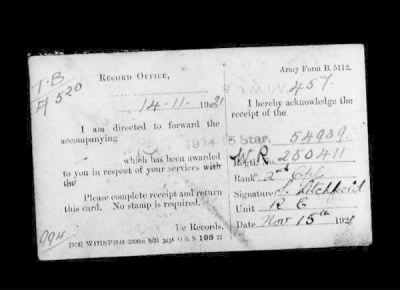 T.B
7/520
RECORD OFFICE,
14-11-1921
I am directed to forward the
accompanying 1914-15 Star.
which has been awarded
to you in respect of your services with
the
Please complete receipt and return
this card. No stamp is required.
i/c Records.
994
Army Form B. 5112.
457.
I hereby acknowledge the
receipt of the
54939
W.R
Regtl. No. 250411
Rank 2nd Cpl
Signature S. Litchfield
Unit R E
Date Nov 15th 1921